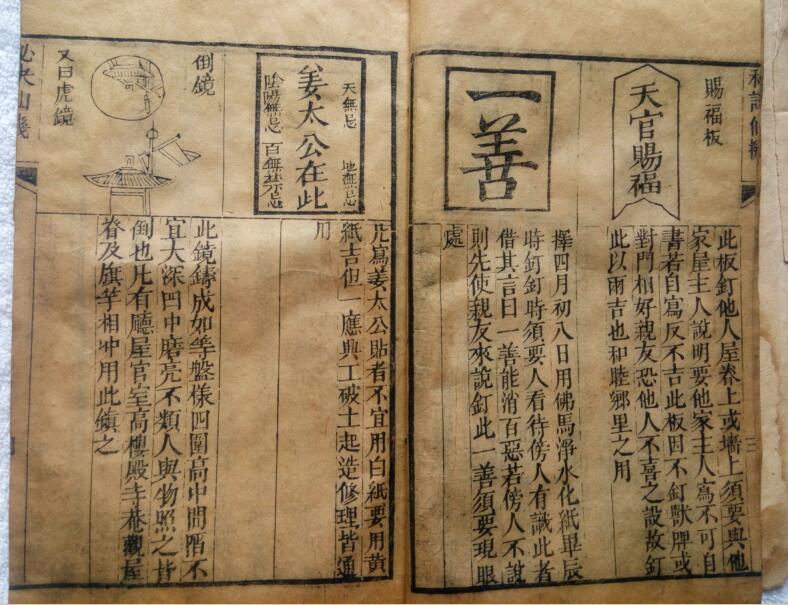 賜福板
天官賜福
此板釘他人屋脊上或墻上須要與他
家屋主人說明要他家主人寫不可自
書若自寫反不吉此板因不釘獸牌或
對門相好親友恐他人不喜之設故釘
此以兩吉也和睦郷里之用
一善
擇四月初八日用佛馬淨水化紙畢辰
時釘釘時須要人看待傍人有識此者
借其言曰一善能消百惡若傍人不說
則先使親友來說釘此一善須要現眼
處
天無忌 地無忌
姜太公在此
陰陽無忌 百無禁忌
凡寫姜太公貼者不宜用白紙要用黃
紙吉但一應興工破土起造修理皆通
用
倒鏡
又曰虎鏡
此鏡鑄成如等盤樣四圍高中間陷不
宜大深凹中磨亮不類人與物照之皆
倒也凡有廳屋官室高樓殿寺菴觀屋
脊及旗竿相冲用此鎮之